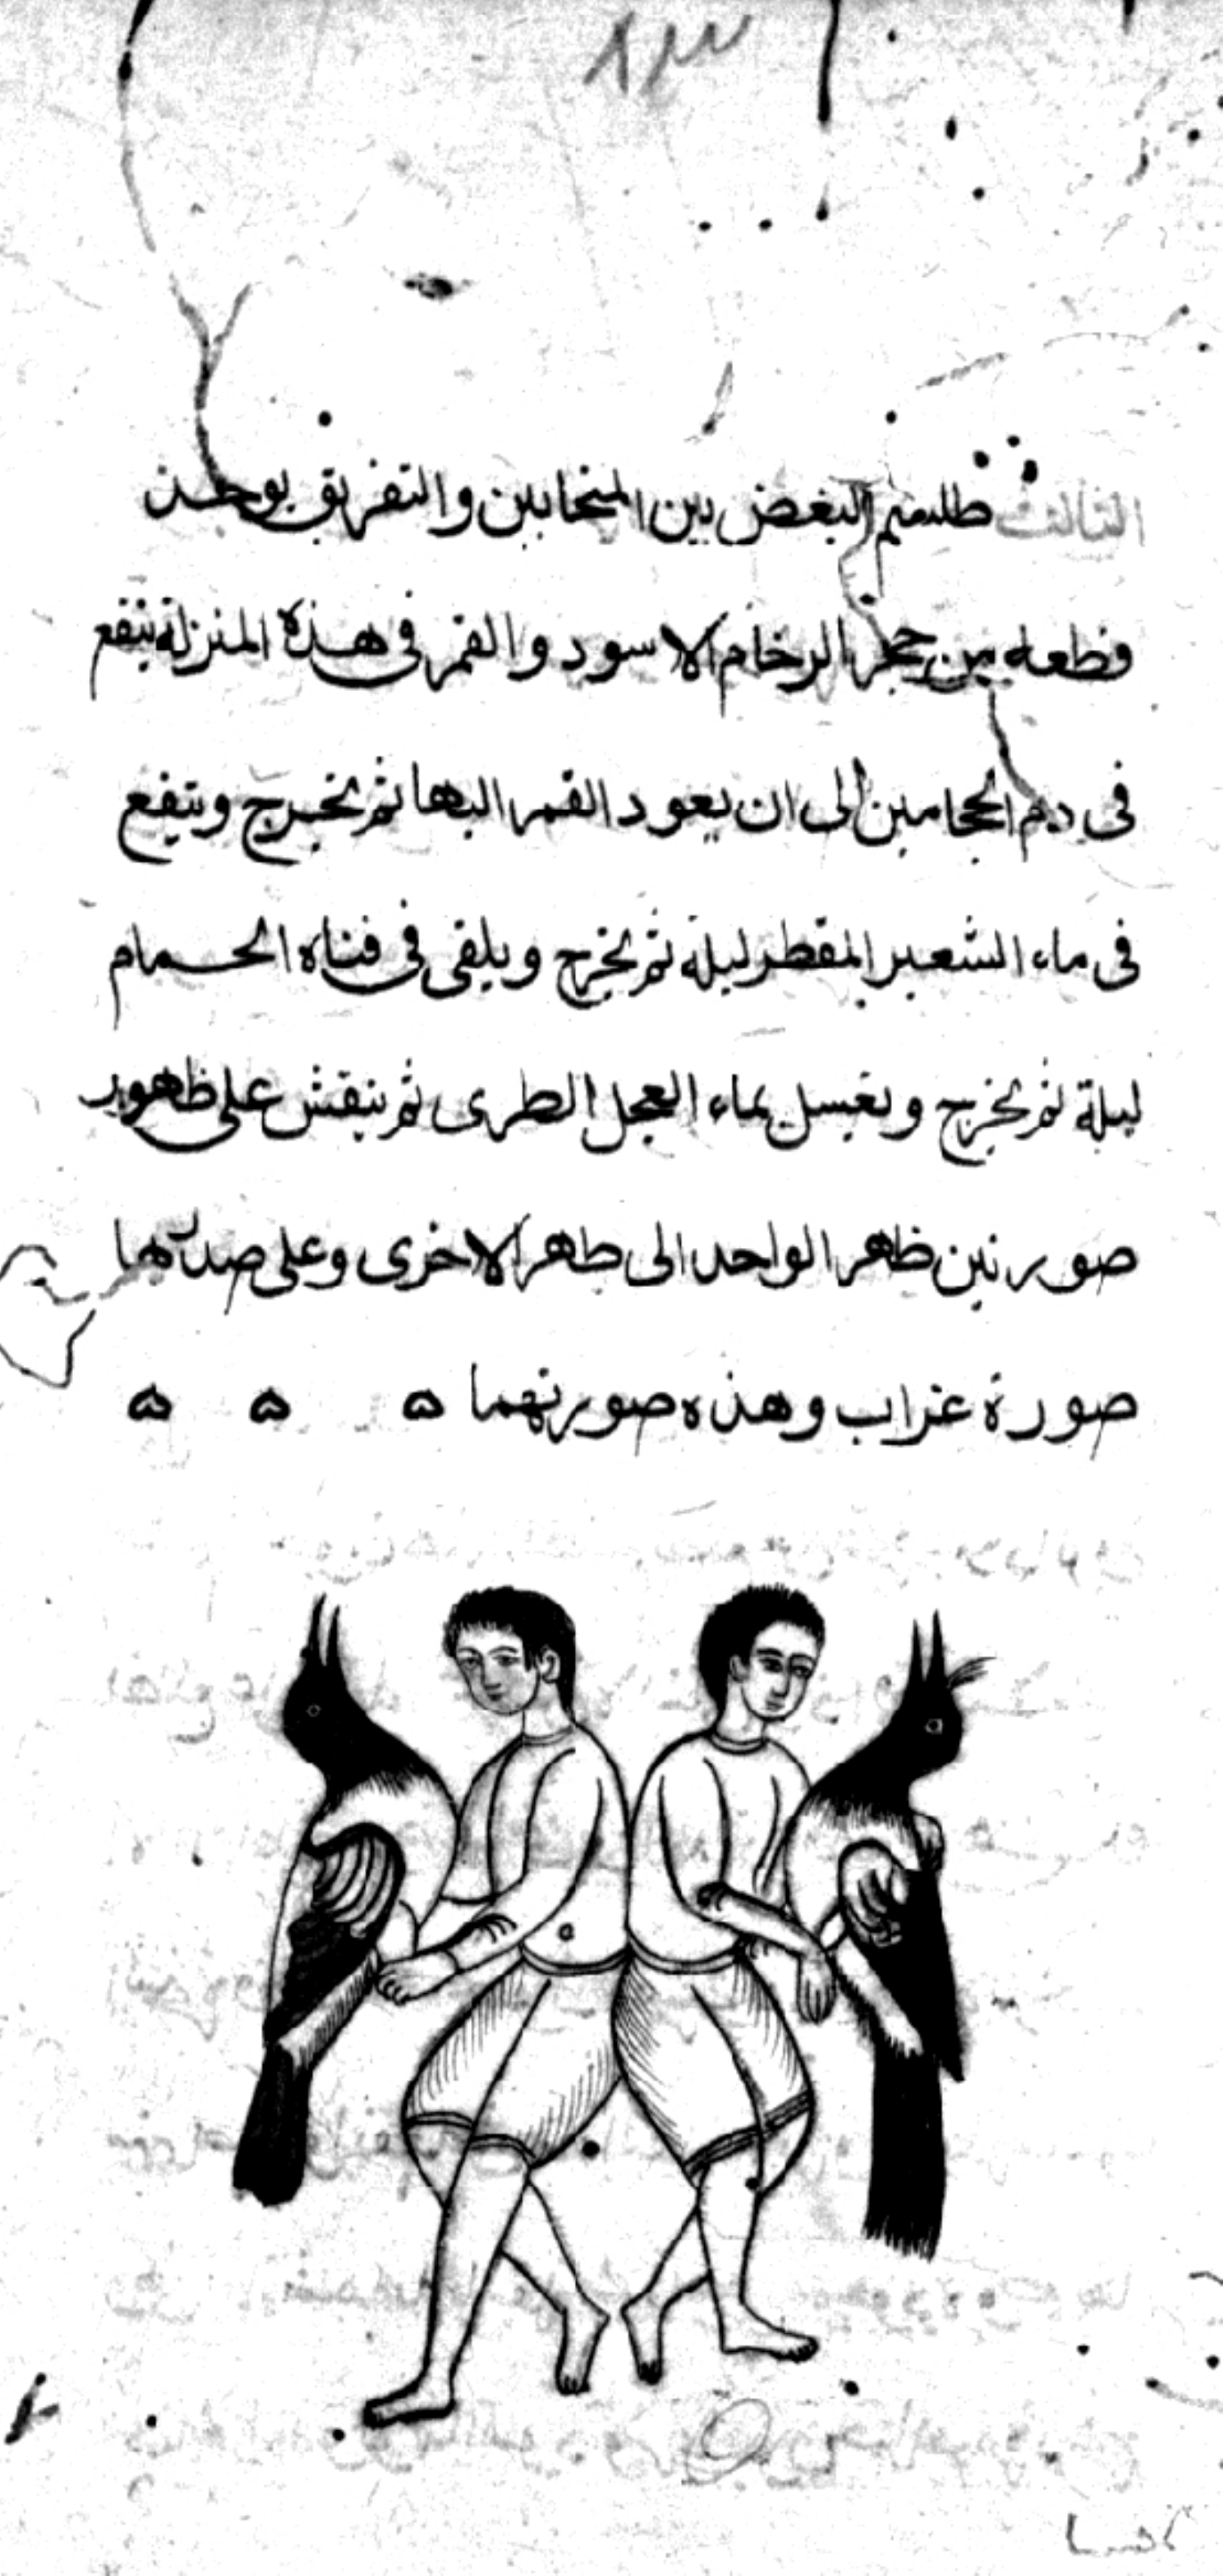 ٨٣
الثالث طلسم البغض بين المتحابين والتفريق يوخذ
قطعه من حجر الرخام الاسود والقمر فى هذه المنزلة ينقع
فى دم الحجامين الى ان يعود القمر اليها ثم تخرج وينقع
فى ماء الشعير المقطر ليلة ثم تخرج ويلقى فى قناة الحمام
ليلة ثم تخرج وتغسل بماء العجل الطرى ثم ينقش على ظهور
صورتين ظهر الواحد الى ظهر الاخرى وعلى
صورة غراب وهذه صورتهما ۵ ۵ ۵